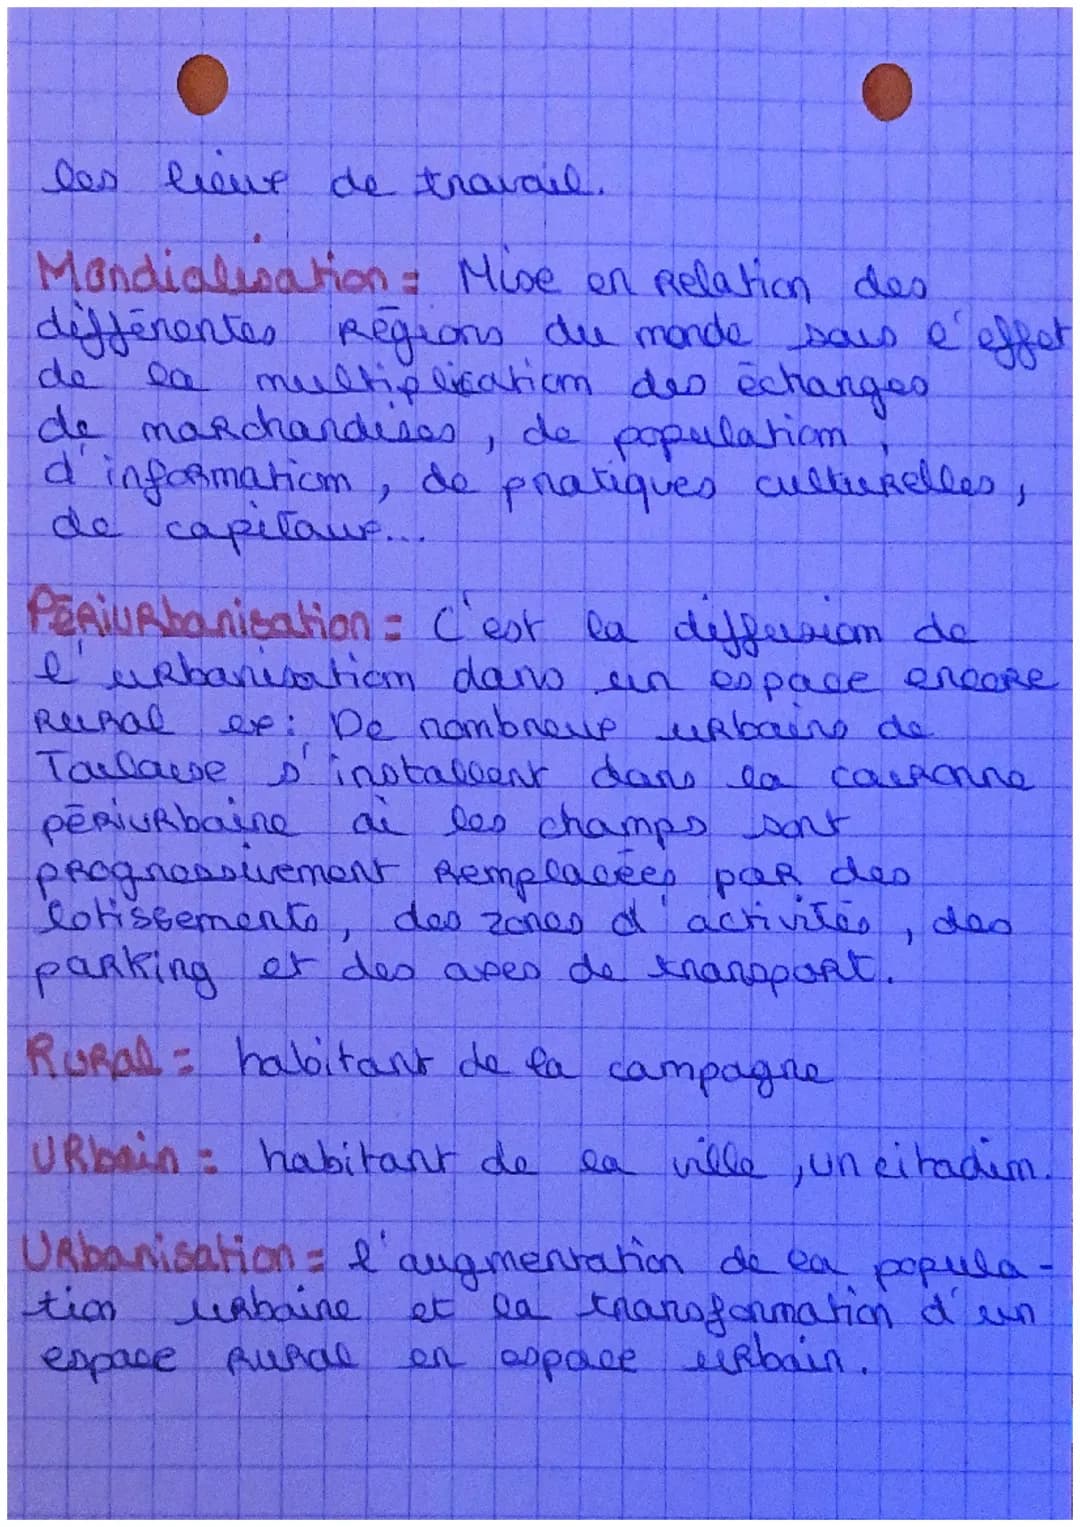 les lieux de travail.
Mondialisation = Mise en Relation des
différentes Régions du monde sous l'effet
de la multiplication des échanges
de marchandises, de population,
d'information, de pratiques culturelles,
de capitaux...
Périurbanisation = C'est la diffusion de
l'urbanisation dans un espace encore
Rural ex: De nombreux urbains de
Toulouse s'installent dans la couronne
périurbaine où les champs sont
progressivement Remplacées par des
lotissements, des zones d'activités, des
parking et des axes de transport.
Rural = habitant de la campagne
Urbain = habitant de la ville, un citadin.
Urbanisation = l'augmentation de la popula-
tion urbaine et la transformation d'un
espace Rural en espace urbain.